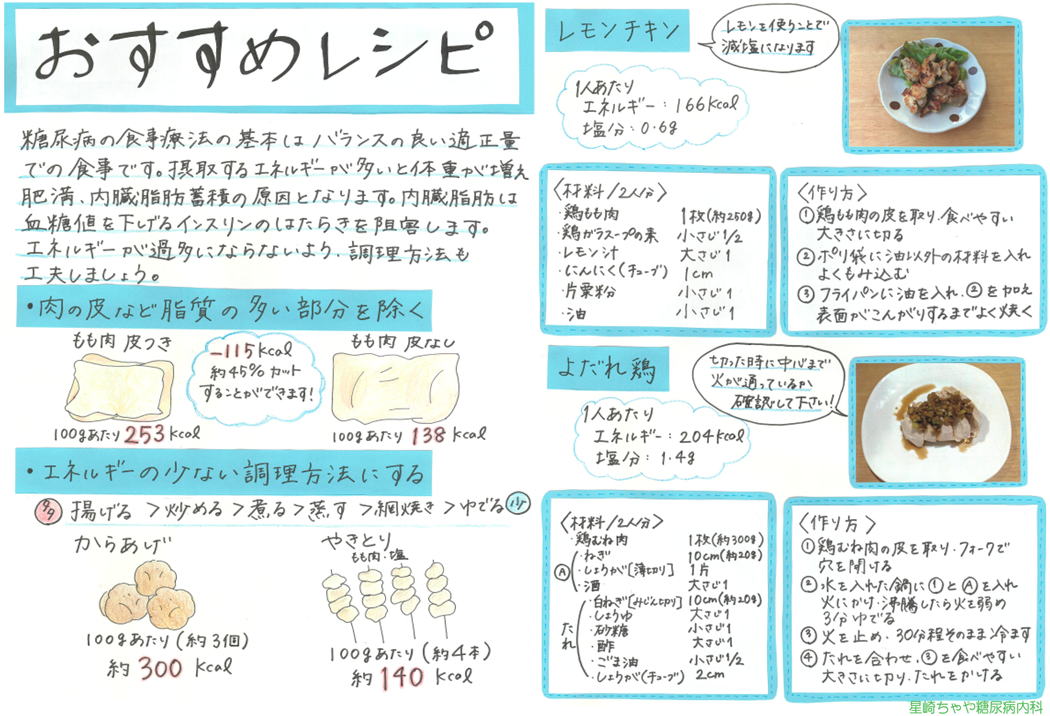 おすすめレシピ
糖尿病の食事療法の基本はバランスの良い適正量
での食事です。摂取するエネルギーが多いと体重が増え
肥満、内臓脂肪蓄積の原因となります。内臓脂肪は
血糖値を下げるインスリンのはたらきを阻害します。
エネルギーが過多にならないよう、調理方法も
工夫しましょう。
・肉の皮など脂質の多い部分を除く
もも肉 皮つき
100gあたり 253 kcal
-115kcal
約45% カット
することができます!
もも肉 皮なし
100gあたり 138 kcal
・エネルギーの少ない調理方法にする
多 揚げる > 炒める > 煮る > 蒸す > 網焼き > ゆでる 少
からあげ
100gあたり (約3個)
約 300 kcal
やきとり
もも肉・塩
100gあたり (約4本)
約 140 kcal
レモンチキン
レモンを使うことで
減塩になります
1人あたり
エネルギー:166kcal
塩分:0.6g
〈材料/2人分〉
・鶏もも肉 1枚(約250g)
・鶏ガラスープの素 小さじ1/2
・レモン汁 大さじ1
・にんにく(チューブ) 1cm
・片栗粉 小さじ1
・油 小さじ1
〈作り方〉
① 鶏もも肉の皮を取り、食べやすい
大きさに切る
② ポリ袋に油以外の材料を入れ
よくもみ込む
③ フライパンに油を入れ、②を加え
表面がこんがりするまでよく焼く
よだれ鶏
切った時に中心まで
火が通っているか
確認して下さい!
1人あたり
エネルギー:204kcal
塩分:1.4g
〈材料/2人分〉
・鶏むね肉 1枚(約300g)
Ⓐ
・ねぎ 10cm(約20g)
・しょうが[薄切り] 1片
・酒 大さじ1
たれ
・白ねぎ[みじん切り] 10cm(約20g)
・しょうゆ 大さじ1
・砂糖 小さじ1
・酢 大さじ1
・ごま油 小さじ1/2
・しょうが(チューブ) 2cm
〈作り方〉
① 鶏むね肉の皮を取り、フォークで
穴を開ける
② 水を入れた鍋に①とⒶを入れ
火にかけ、沸騰したら火を弱め
3分ゆでる
③ 火を止め、30分程そのまま冷ます
④ たれを合わせ、③を食べやすい
大きさに切り、たれをかける
星崎ちゃや糖尿病内科